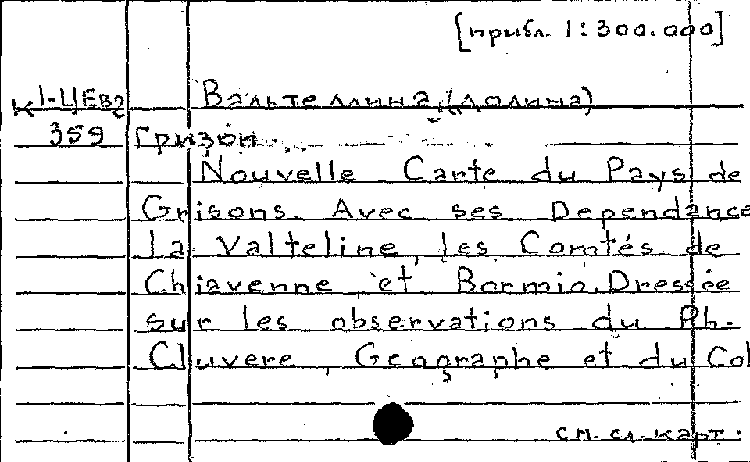 [прибл. 1:300.000]
К 1-ЦЕв2 Вальтеллина, (долина)
359 Гризон.
Nouvelle Carte du Pays de
Grisons. Avec ses Dependance
La Valteline, les Comtés de
Chiavenne et Bormio. Dressée
sur les observations du Ph.
Cluvere, Geographe et du Col
см. сл. карт.